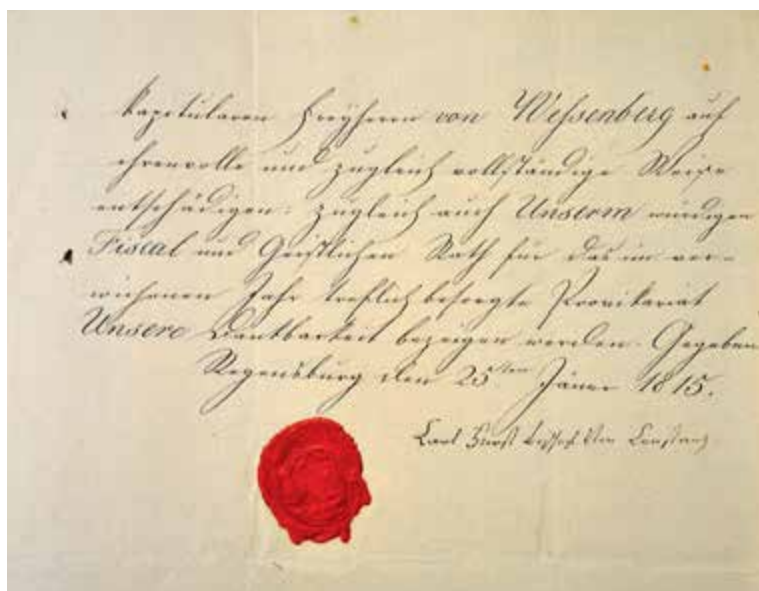 Kapitularen Freyherrn von Wessenberg auf
ehrenvolle und zugleich vollständige Weise
entschädigen: zugleich auch Unserm würdigen
Fiscal und Geistlichen Rath für das im ver-
wichenen Jahr treflich besorgte Provikariat
Unsere Dankbarkeit bezeigen werden. Gegeben
Regensburg den 25ten Jäner 1815.
Carl Fürst Bischof von Constanz